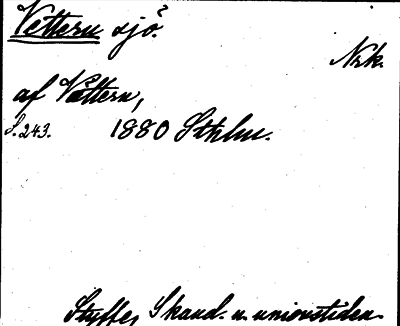 Vettern sjö.
Nrk.
af Vättern,
S. 243. 1880 Sthlm.
Styffe, Skand. u. unionstiden.